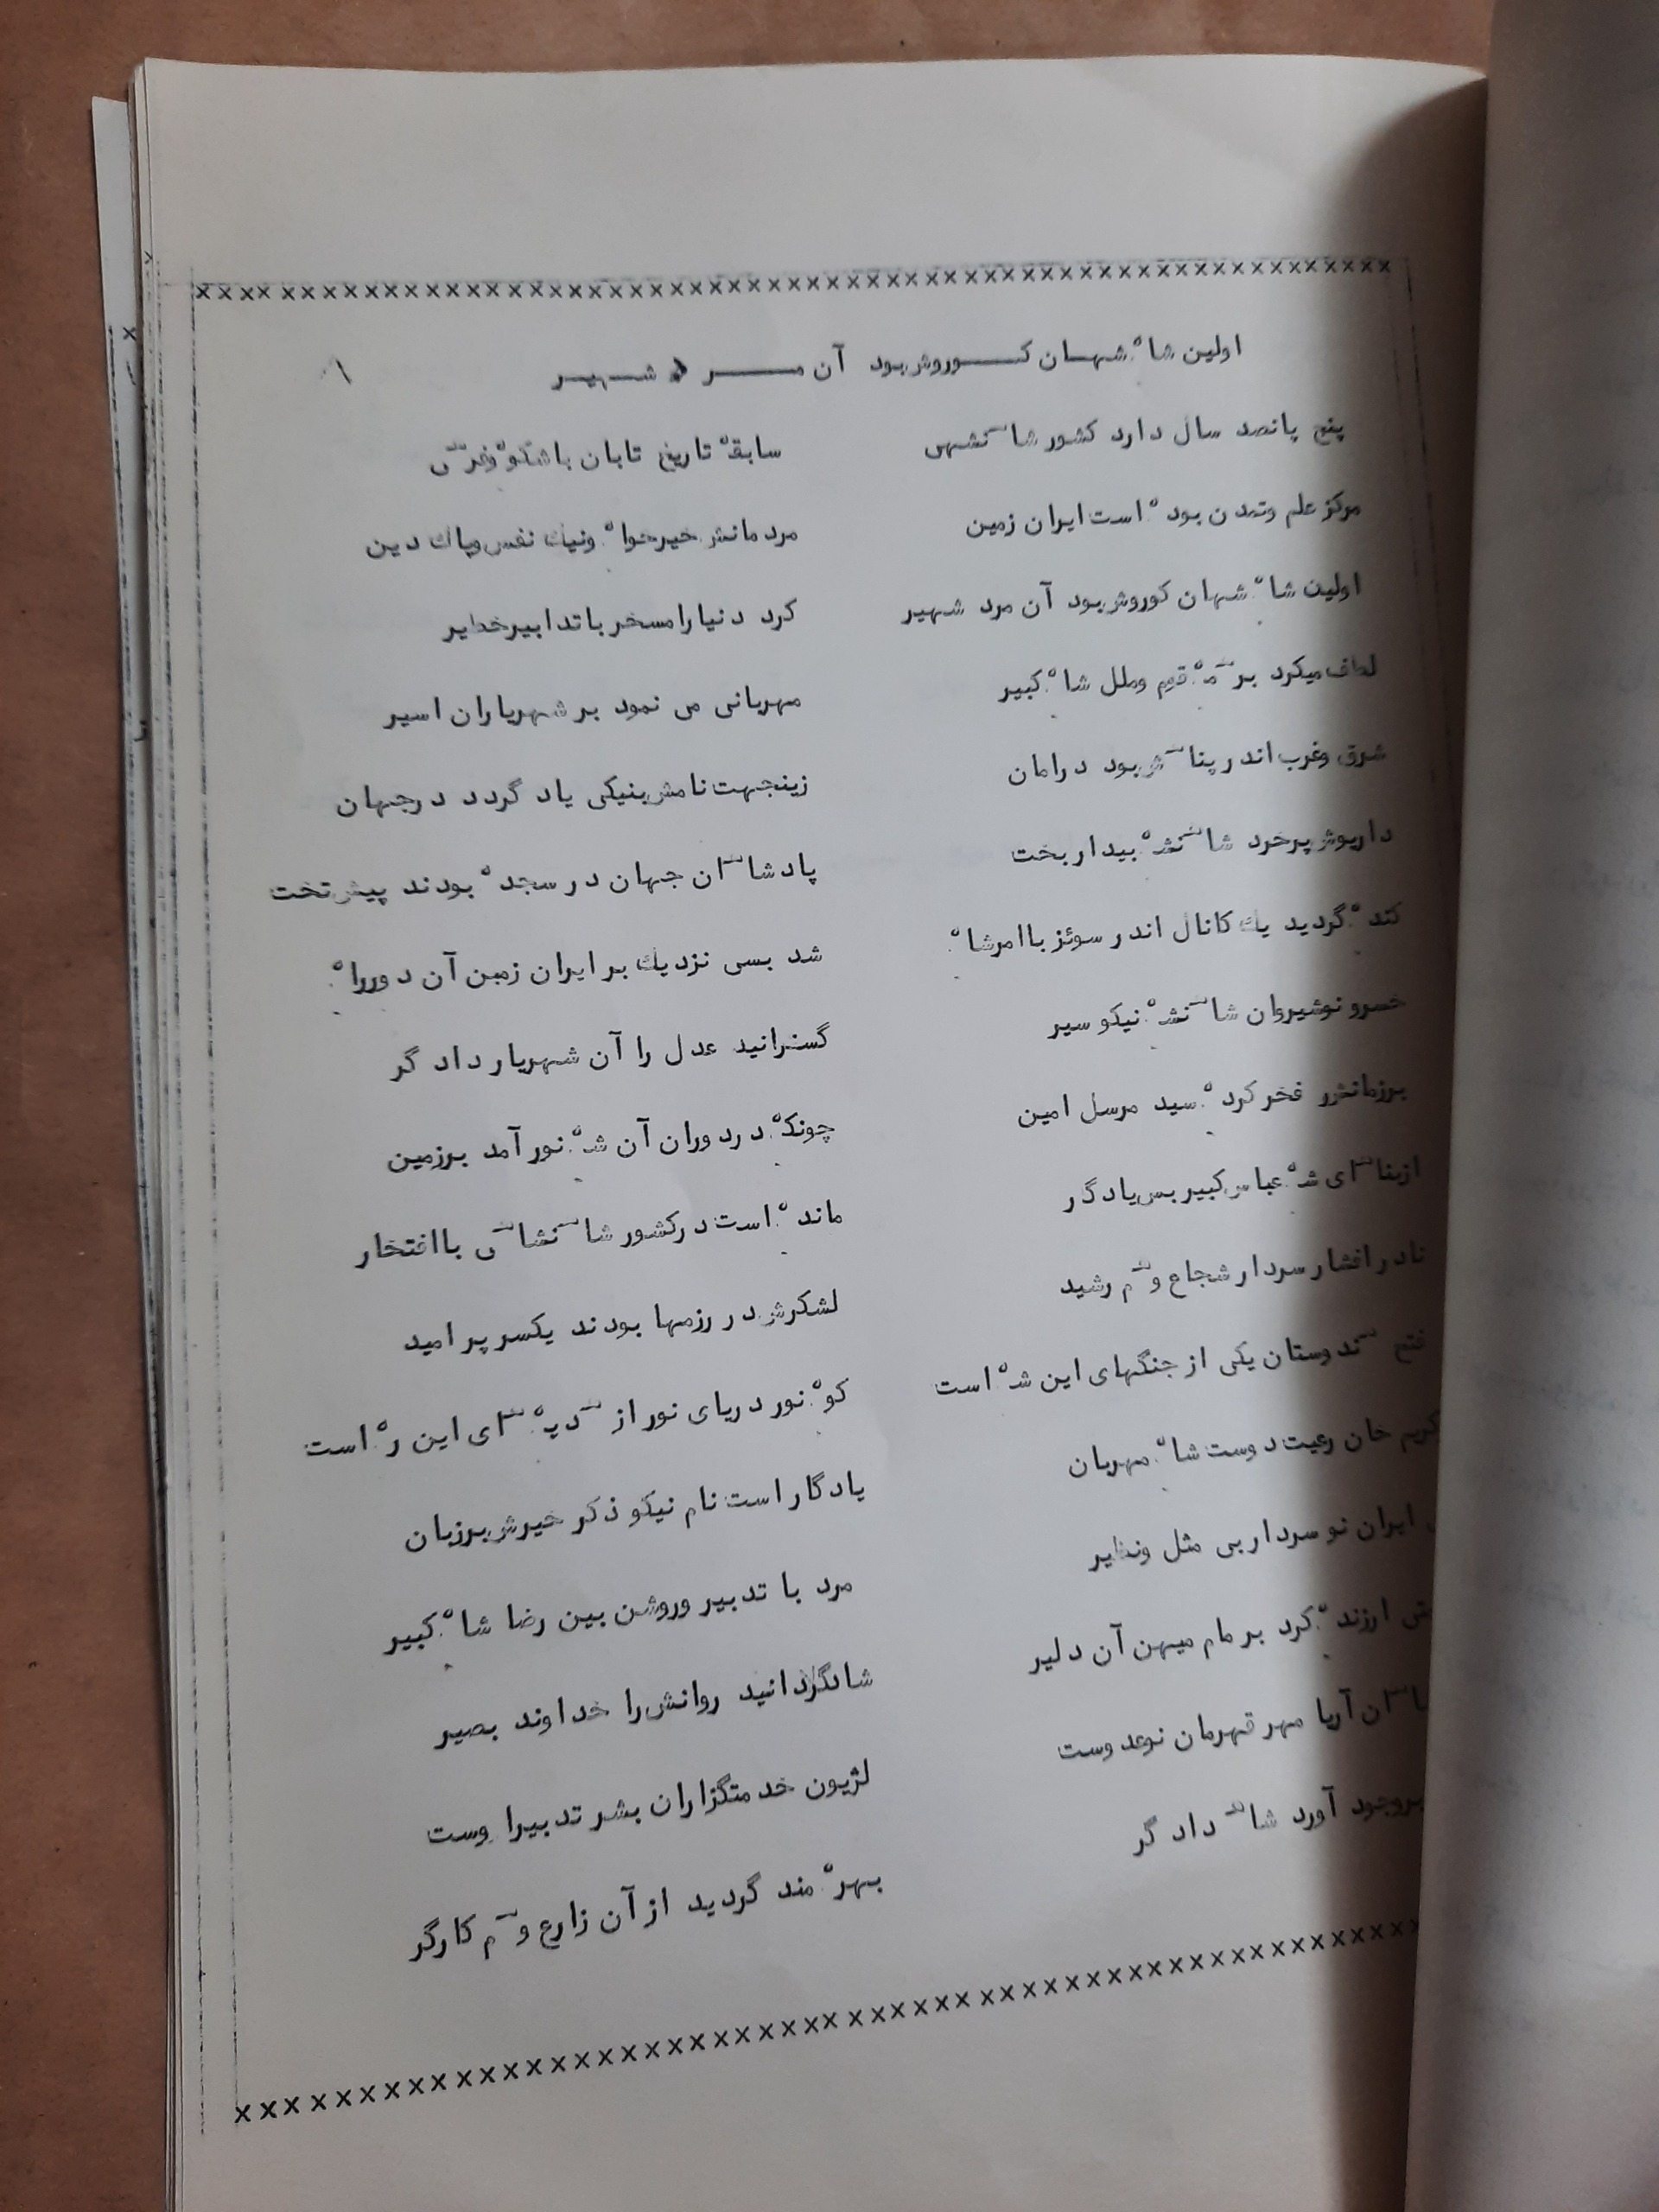 اولین شاه شهان کوروش بود آن مرد شهیر
۱
پنج پانصد سال دارد کشور شاهنشهی
سابقه تاریخ تابان باشکوه وفرهی
مرکز علم وتمدن بوده است ایران زمین
مردمانش خیرخواه ونیك نفس وپاك دین
اولین شاه شهان کوروش بود آن مرد شهیر
کرد دنیا را مسخر با تدابیر خطیر
لطف میکرد بر همه قوم وملل شاه کبیر
مهربانی می نمود بر شهریاران اسیر
شرق وغرب اندر پناهش بود در امان
زینجهت نامش بنیکی یاد گردد درجهان
داریوش پرخرد شاهنشه بیدار بخت
پادشاهان جهان در سجده بودند پیش تخت
کنده گردید یك کانال اندر سوئز باامرشاه
شد بسی نزدیك بر ایران زمین آن دورراه
خسرو نوشیروان شاهنشه نیکو سیر
گسترانید عدل را آن شهریار داد گر
برزمانش فخر کرده سید مرسل امین
چونکه در دوران آن شه نور آمد برزمین
ازبناهای شه عباس کبیر بس یادگار
مانده است درکشور شاهنشاهی باافتخار
نادر افشار سردار شجاع وهم رشید
لشکرش در رزمها بودند یکسر پر امید
فتح هندوستان یکی از جنگهای این شه است
کوه نور دریای نور از هدیه های این ره است
کریم خان رعیت دوست شاه مهربان
یادگار است نام نیکو ذکر خیرش برزبان
ایران نو سردار بی مثل ونظیر
مرد با تدبیر وروشن بین رضا شاه کبیر
ارزنده کرد بر مام میهن آن دلیر
شادگردانید روانش را خداوند بصیر
آریا مهر قهرمان نوعدوست
لژیون خدمتگزاران بشر تدبیر اوست
بروجود آورد شاه داد گر
بهره مند گردید از آن زارع وهم کارگر